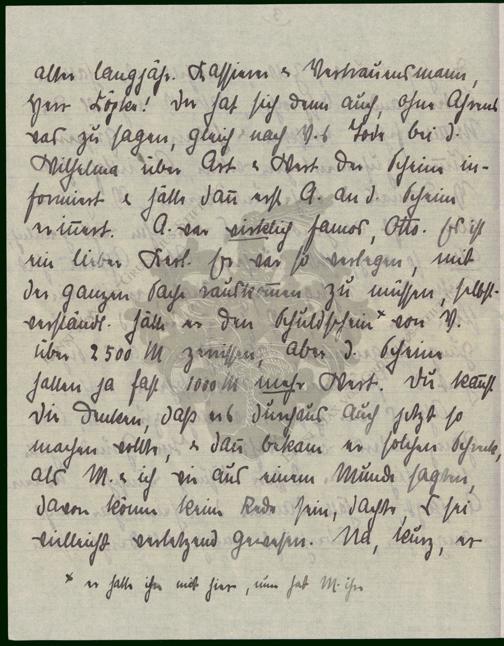 alter langjähr. Kassierer & Vertrauensmann,
Herr Köpke! Der hat sich denn auch, ohne Ahrens
was zu sagen, gleich nach V.s Tode bei d.
Wilhelma über Art & Wert der Scheine in-
formiert & hätte dann erst A. an d. Scheine
erinnert. A. war wirklich famos, Otto. Er ist
ein lieber Kerl. Er war so verlegen, mit
der ganzen Sache rauskommen zu müssen, selbst-
verständl. hätte er den Schuldschein* von V.
über 2500 M zerrissen, aber d. Scheine
hatten ja fast 1000 M mehr Wert. Du kannst
Dir denken, daß er's durchaus auch jetzt so
machen wollte, & dann bekam er solchen Schreck,
als M. & ich wie aus einem Munde sagten,
davon könne keine Rede sein, dachte, es sei
vielleicht verletzend gewesen. Na, kurz, er
* er hatte ihn mit hier, nun hat M. ihn